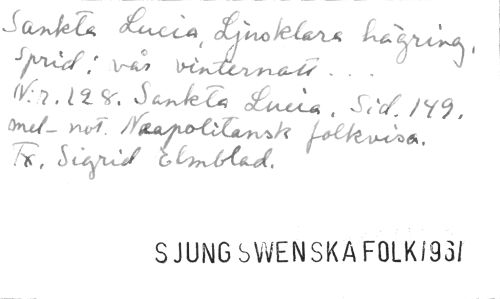 Sankta Lucia, Ljusklara hägring,
sprid i vår vinternatt...
N:r. 128. Sankta Lucia. Sid. 149.
mel-not. Neapolitansk folkvisa.
Tx. Sigrid Elmblad.
SJUNG SWENSKA FOLK 1961